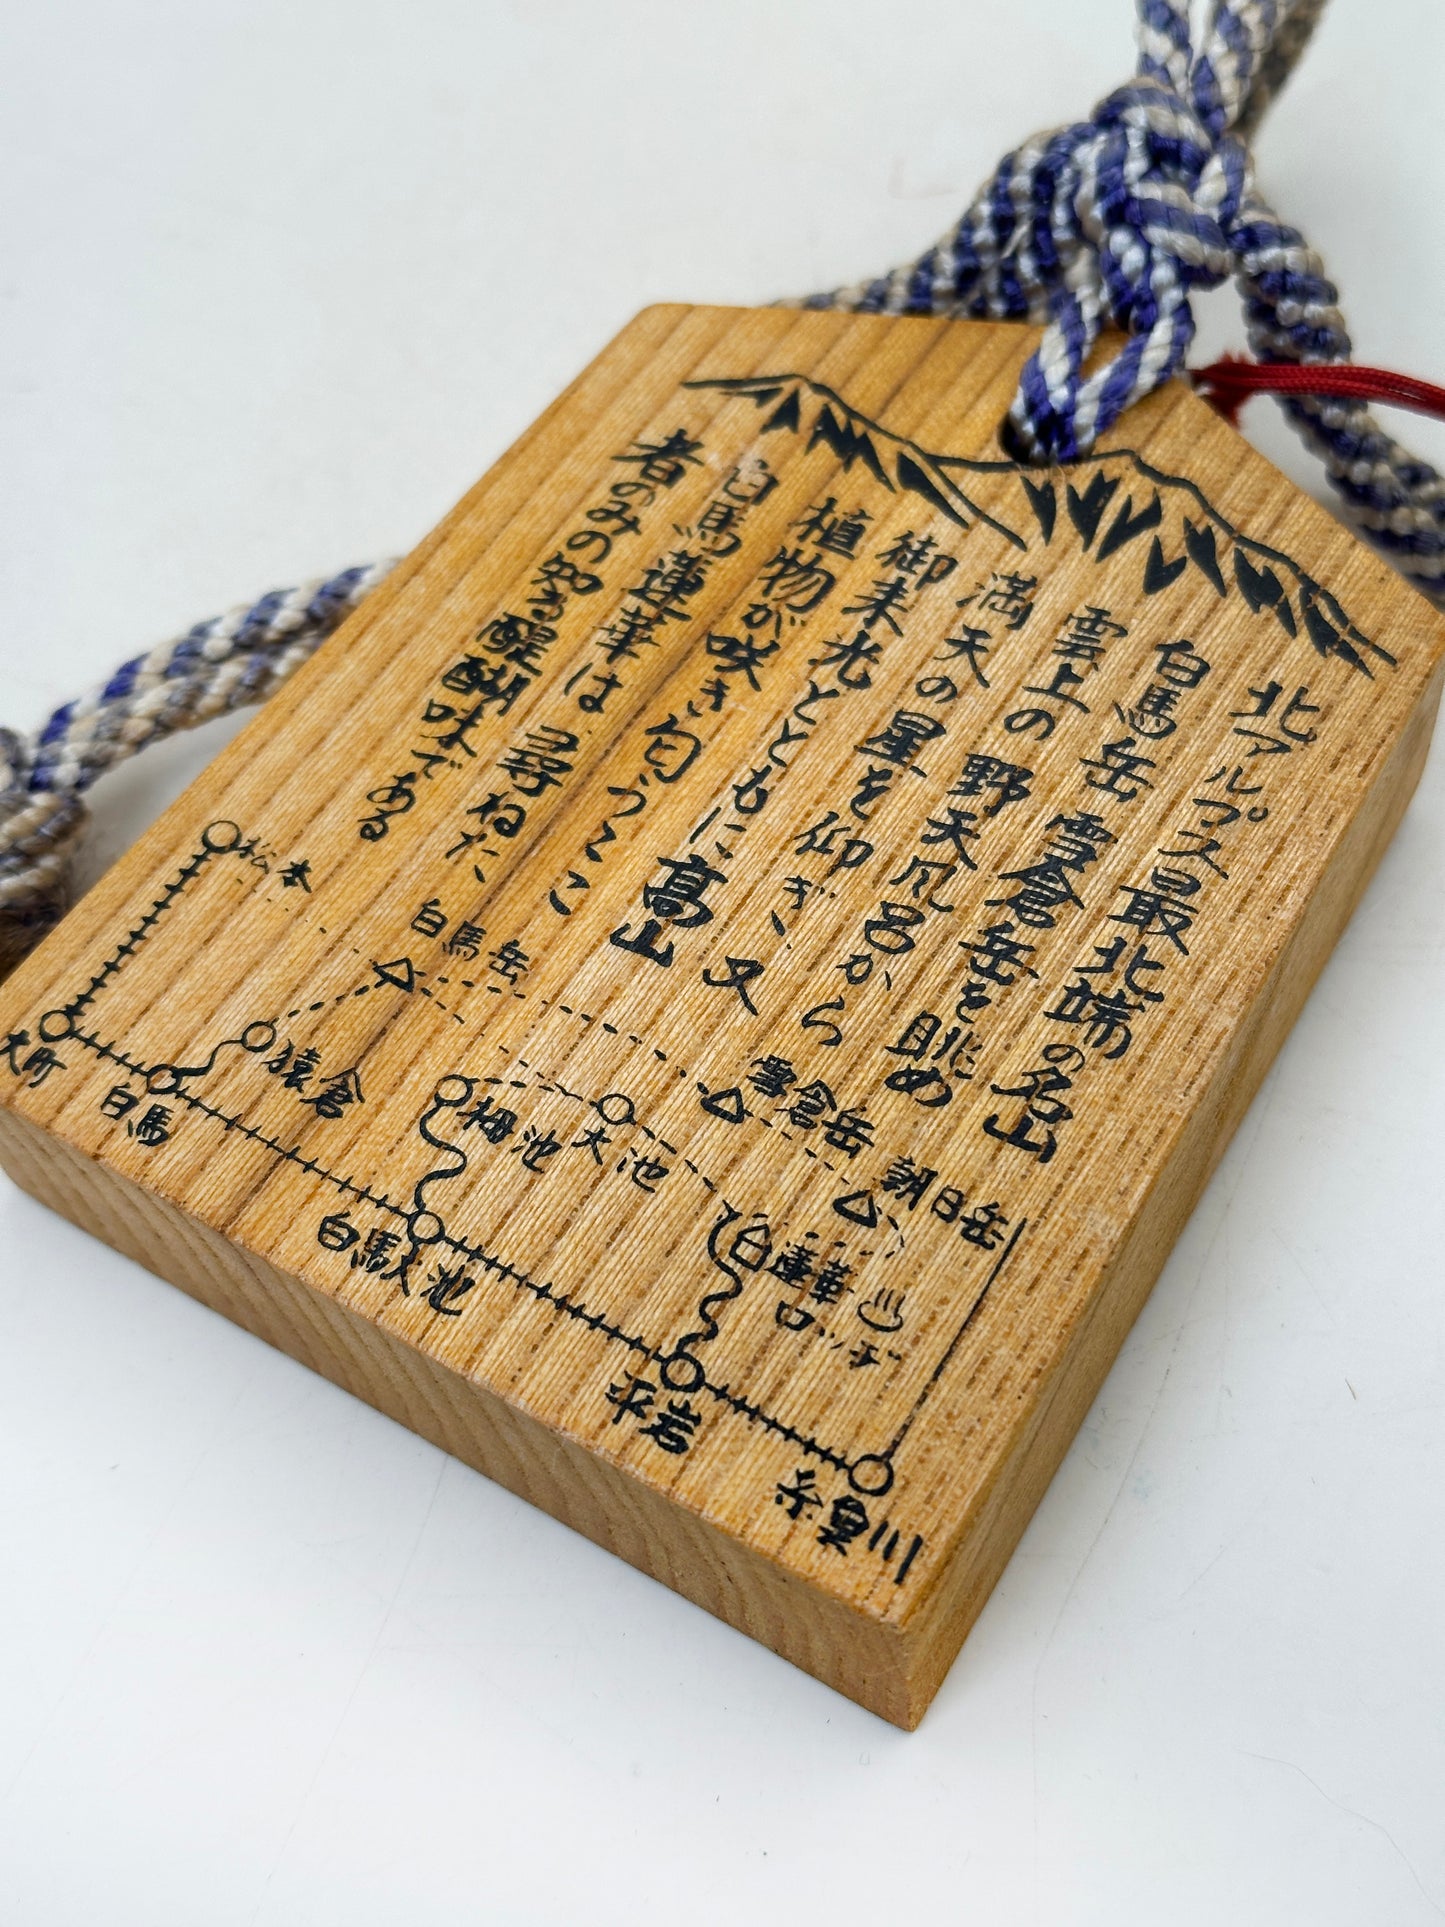 北アルプス最北端の名山
白馬岳 雪倉岳を眺め
雲上の野天風呂から
満天の星を仰ぎ、又
御来光とともに高山
植物が咲き匂うここ
白馬蓮華は、尋ねた
者のみの知る醍醐味である
松本
大町
白馬
猿倉
白馬岳
栂池
大池
白馬大池
雪倉岳
朝日岳
白馬蓮華
ロッヂ
平岩
糸魚川